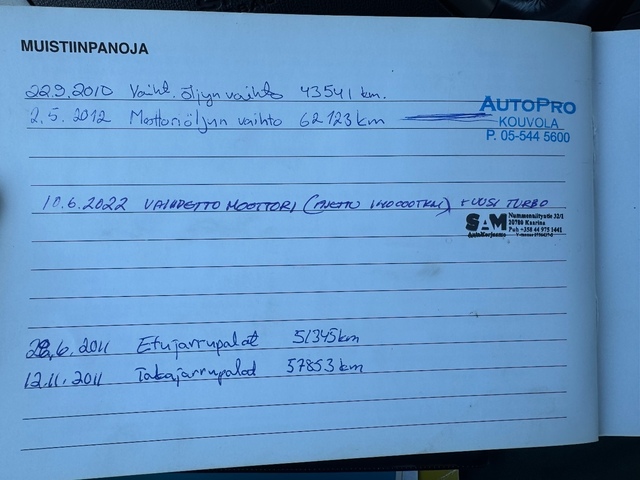 MUISTIINPANOJA
22.9.2010 Vaiht. öljyn vaihto 43541 km.
2.5.2012 Moottoriöljyn vaihto 62123 km
AUTOPRO
KOUVOLA
P. 05-544 5600
10.6.2022 VAIHDETTO MOOTTORI (AJETTU 140000TKM) + UUSI TURBO
SAM
AutoKorjaamo
Nummensillyatie 32/1
20780 Kaarina
Puh +358 44 975 1441
28.6.2011 Etujarrupalat 51345 km
12.11.2011 Takajarrupalat 57853 km